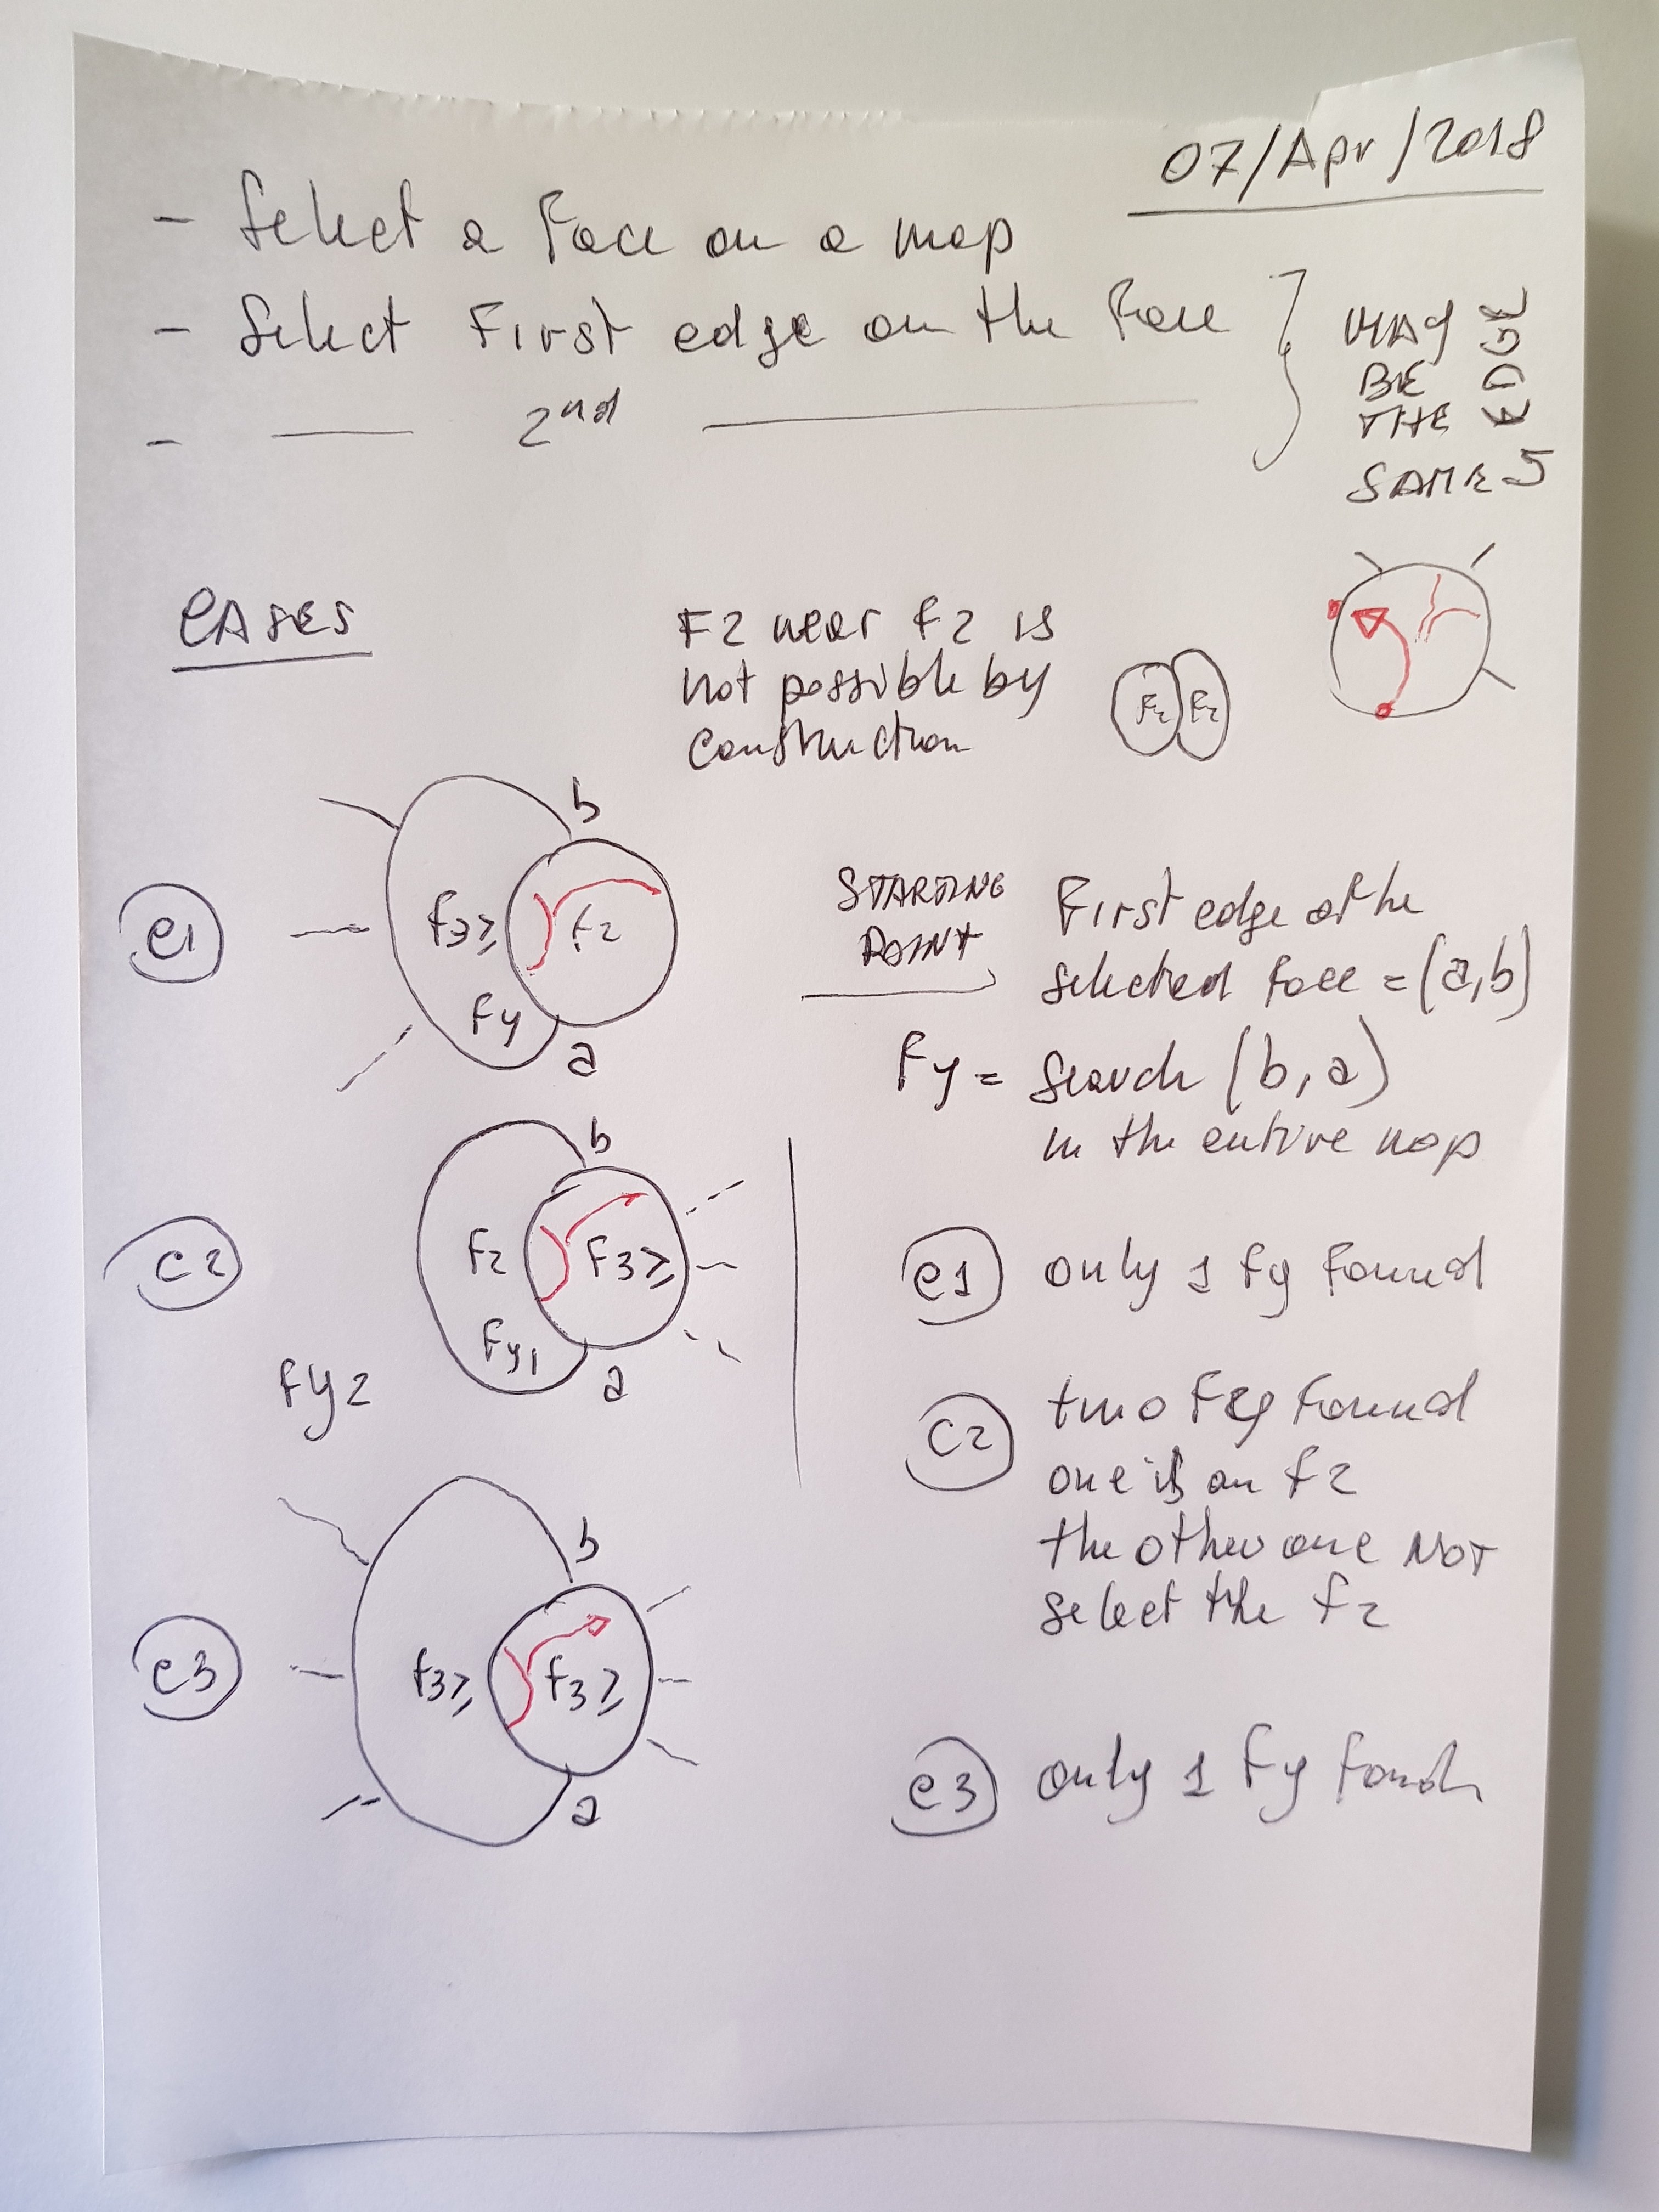 07/Apr/2018
- Select a Face on a map
- Select First edge on the Face
- —— 2nd ——————
MAY
BE
THE
SAME
EDGE
CASES
F2 near F2 is
not possible by
construction
F2 F2
b
C1
F3≥ F2
Fy
a
STARTING
POINT
First edge of the
selected face = (a,b)
Fy = Search (b,a)
in the entire map
b
C2
F2 F3≥
Fy1
Fy2
a
C1 only 1 Fy Found
C2 two Fy Found
one is an F2
the other one NOT
select the F2
b
C3
F3≥ F3≥
a
C3 only 1 Fy Found